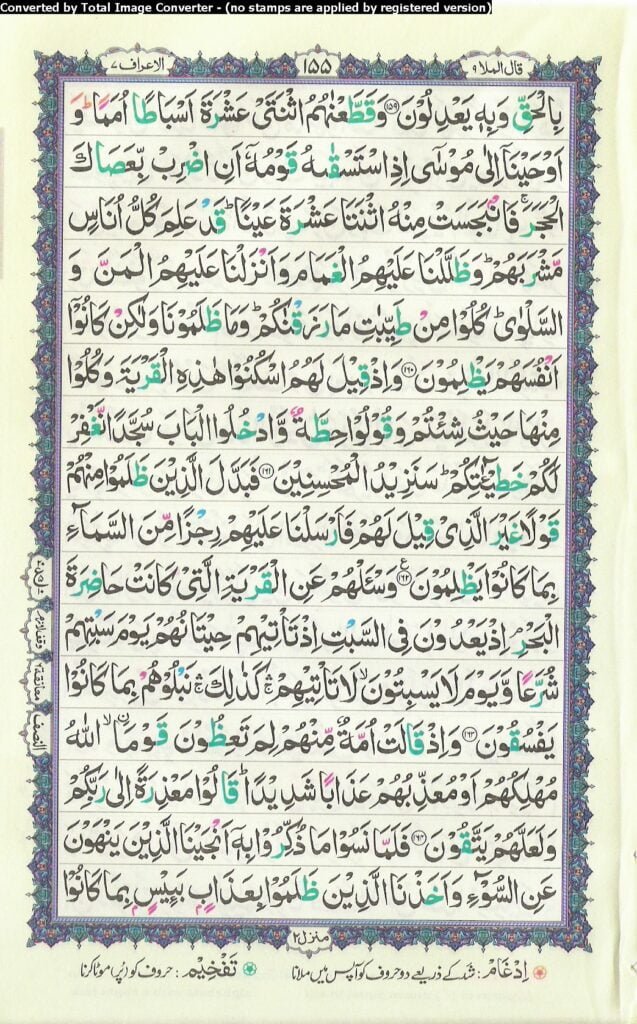 Converted by Total Image Converter - (no stamps are applied by registered version)
قال الملا ٩
١٥٥
الاعراف ٧
بِالْحَقِّ وَبِهٖ يَعْدِلُوْنَ ﴿١٥٩﴾ وَقَطَّعْنٰهُمُ اثْنَتَیْ عَشْرَةَ اَسْبَاطًا اُمَمًا ؕ وَ
اَوْحَيْنَاۤ اِلٰی مُوْسٰۤی اِذِ اسْتَسْقٰىهُ قَوْمُهٗۤ اَنِ اضْرِبْ بِّعَصَاكَ
الْحَجَرَ ۚ فَانْۢبَجَسَتْ مِنْهُ اثْنَتَا عَشْرَةَ عَيْنًا ؕ قَدْ عَلِمَ كُلُّ اُنَاسٍ
مَّشْرَبَهُمْ ؕ وَظَلَّلْنَا عَلَيْهِمُ الْغَمَامَ وَاَنْزَلْنَا عَلَيْهِمُ الْمَنَّ وَ
السَّلْوٰی ؕ كُلُوْا مِنْ طَيِّبٰتِ مَا رَزَقْنٰكُمْ ؕ وَمَا ظَلَمُوْنَا وَلٰكِنْ كَانُوْۤا
اَنْفُسَهُمْ يَظْلِمُوْنَ ﴿١٦٠﴾ وَاِذْ قِيْلَ لَهُمُ اسْكُنُوْا هٰذِهِ الْقَرْيَةَ وَكُلُوْا
مِنْهَا حَيْثُ شِئْتُمْ وَقُوْلُوْا حِطَّةٌ وَّادْخُلُوا الْبَابَ سُجَّدًا نَّغْفِرْ
لَكُمْ خَطِيْٓـٰٔتِكُمْ ؕ سَنَزِيْدُ الْمُحْسِنِيْنَ ﴿١٦١﴾ فَبَدَّلَ الَّذِيْنَ ظَلَمُوْا مِنْهُمْ
قَوْلًا غَيْرَ الَّذِیْ قِيْلَ لَهُمْ فَاَرْسَلْنَا عَلَيْهِمْ رِجْزًا مِّنَ السَّمَآءِ
بِمَا كَانُوْا يَظْلِمُوْنَ ﴿١٦٢﴾ ع وَسْـَٔلْهُمْ عَنِ الْقَرْيَةِ الَّتِیْ كَانَتْ حَاضِرَةَ
الْبَحْرِ ۘ اِذْ يَعْدُوْنَ فِی السَّبْتِ اِذْ تَاْتِيْهِمْ حِيْتَانُهُمْ يَوْمَ سَبْتِهِمْ
شُرَّعًا وَّيَوْمَ لَا يَسْبِتُوْنَ ۙ لَا تَاْتِيْهِمْ ۛۚ كَذٰلِكَ ۛۚ نَبْلُوْهُمْ بِمَا كَانُوْا
يَفْسُقُوْنَ ﴿١٦٣﴾ وَاِذْ قَالَتْ اُمَّةٌ مِّنْهُمْ لِمَ تَعِظُوْنَ قَوْمًا ۙ اللّٰهُ
مُهْلِكُهُمْ اَوْ مُعَذِّبُهُمْ عَذَابًا شَدِيْدًا ؕ قَالُوْا مَعْذِرَةً اِلٰی رَبِّكُمْ
وَلَعَلَّهُمْ يَتَّقُوْنَ ﴿١٦٤﴾ فَلَمَّا نَسُوْا مَا ذُكِّرُوْا بِهٖۤ اَنْجَيْنَا الَّذِيْنَ يَنْهَوْنَ
عَنِ السُّوْٓءِ وَاَخَذْنَا الَّذِيْنَ ظَلَمُوْا بِعَذَابٍۭ بَـِٔيْسٍۭ بِمَا كَانُوْا
وقف لازم
معانقة ٢
النصف
منزل ٢
اِدْغَام : شد کے ذریعے دو حروف کو آپس میں ملانا
تَفْخِيْم : حروف کو (پُر) موٹا کرنا